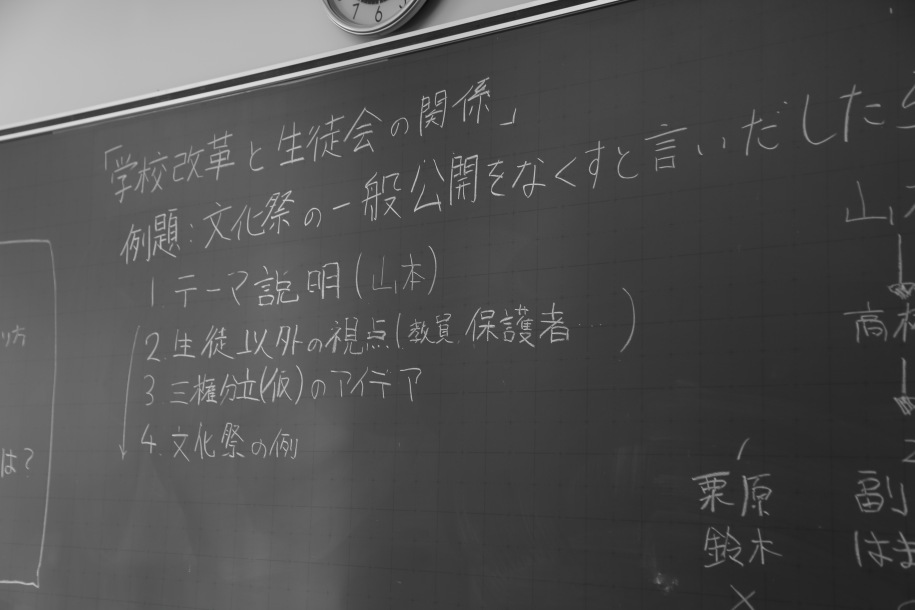 「学校改革と生徒会の関係」
例題:文化祭の一般公開をなくすと言いだしたら
1. テーマ説明(山本)
2. 生徒以外の視点(教員、保護者…)
3 三権分立(仮)のアイデア
4. 文化祭の例
り方
は?
山本
高木
栗原
鈴木
副
はま
7 6